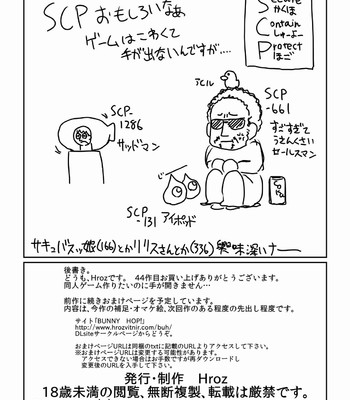 SCPおもしろいなぁ
ゲームはこわくて
手が出ないんですが….
Secure
かくほ
Contain
しゅーよー
Protect
ほご
アヒル
SCP
-661
すごすぎて
うさんくさい
セールスマン
SCP-
1286
サッドマン
SCP
-131 アイポッド
サキュバスッ娘(166)とかリリスさんとか(336)興味深いナー
後書き。
どうも、Hrozです。 44作目お買い上げありがとうございます。
同人ゲーム作りたいのに手が開きません…
前作に続きおまけページを予定しています。
内容は、今作の補足・オマケ絵、次回作のある程度の先出し程度です。
サイト「BUNNY HOP!」
http://www.hrozvitnir.com/buh/
DLsiteサークルページからどうぞ。
おまけページURLは同梱のtxtに記載のURLよりアクセスして下さい。
※おまけページURLは変更する可能性があります。
アクセスできない場合はお手数ですが再ダウンロードし
変更後のURLを入手して下さい。
発行・制作 Hroz
18歳未満の閲覧、無断複製、転載は厳禁です。